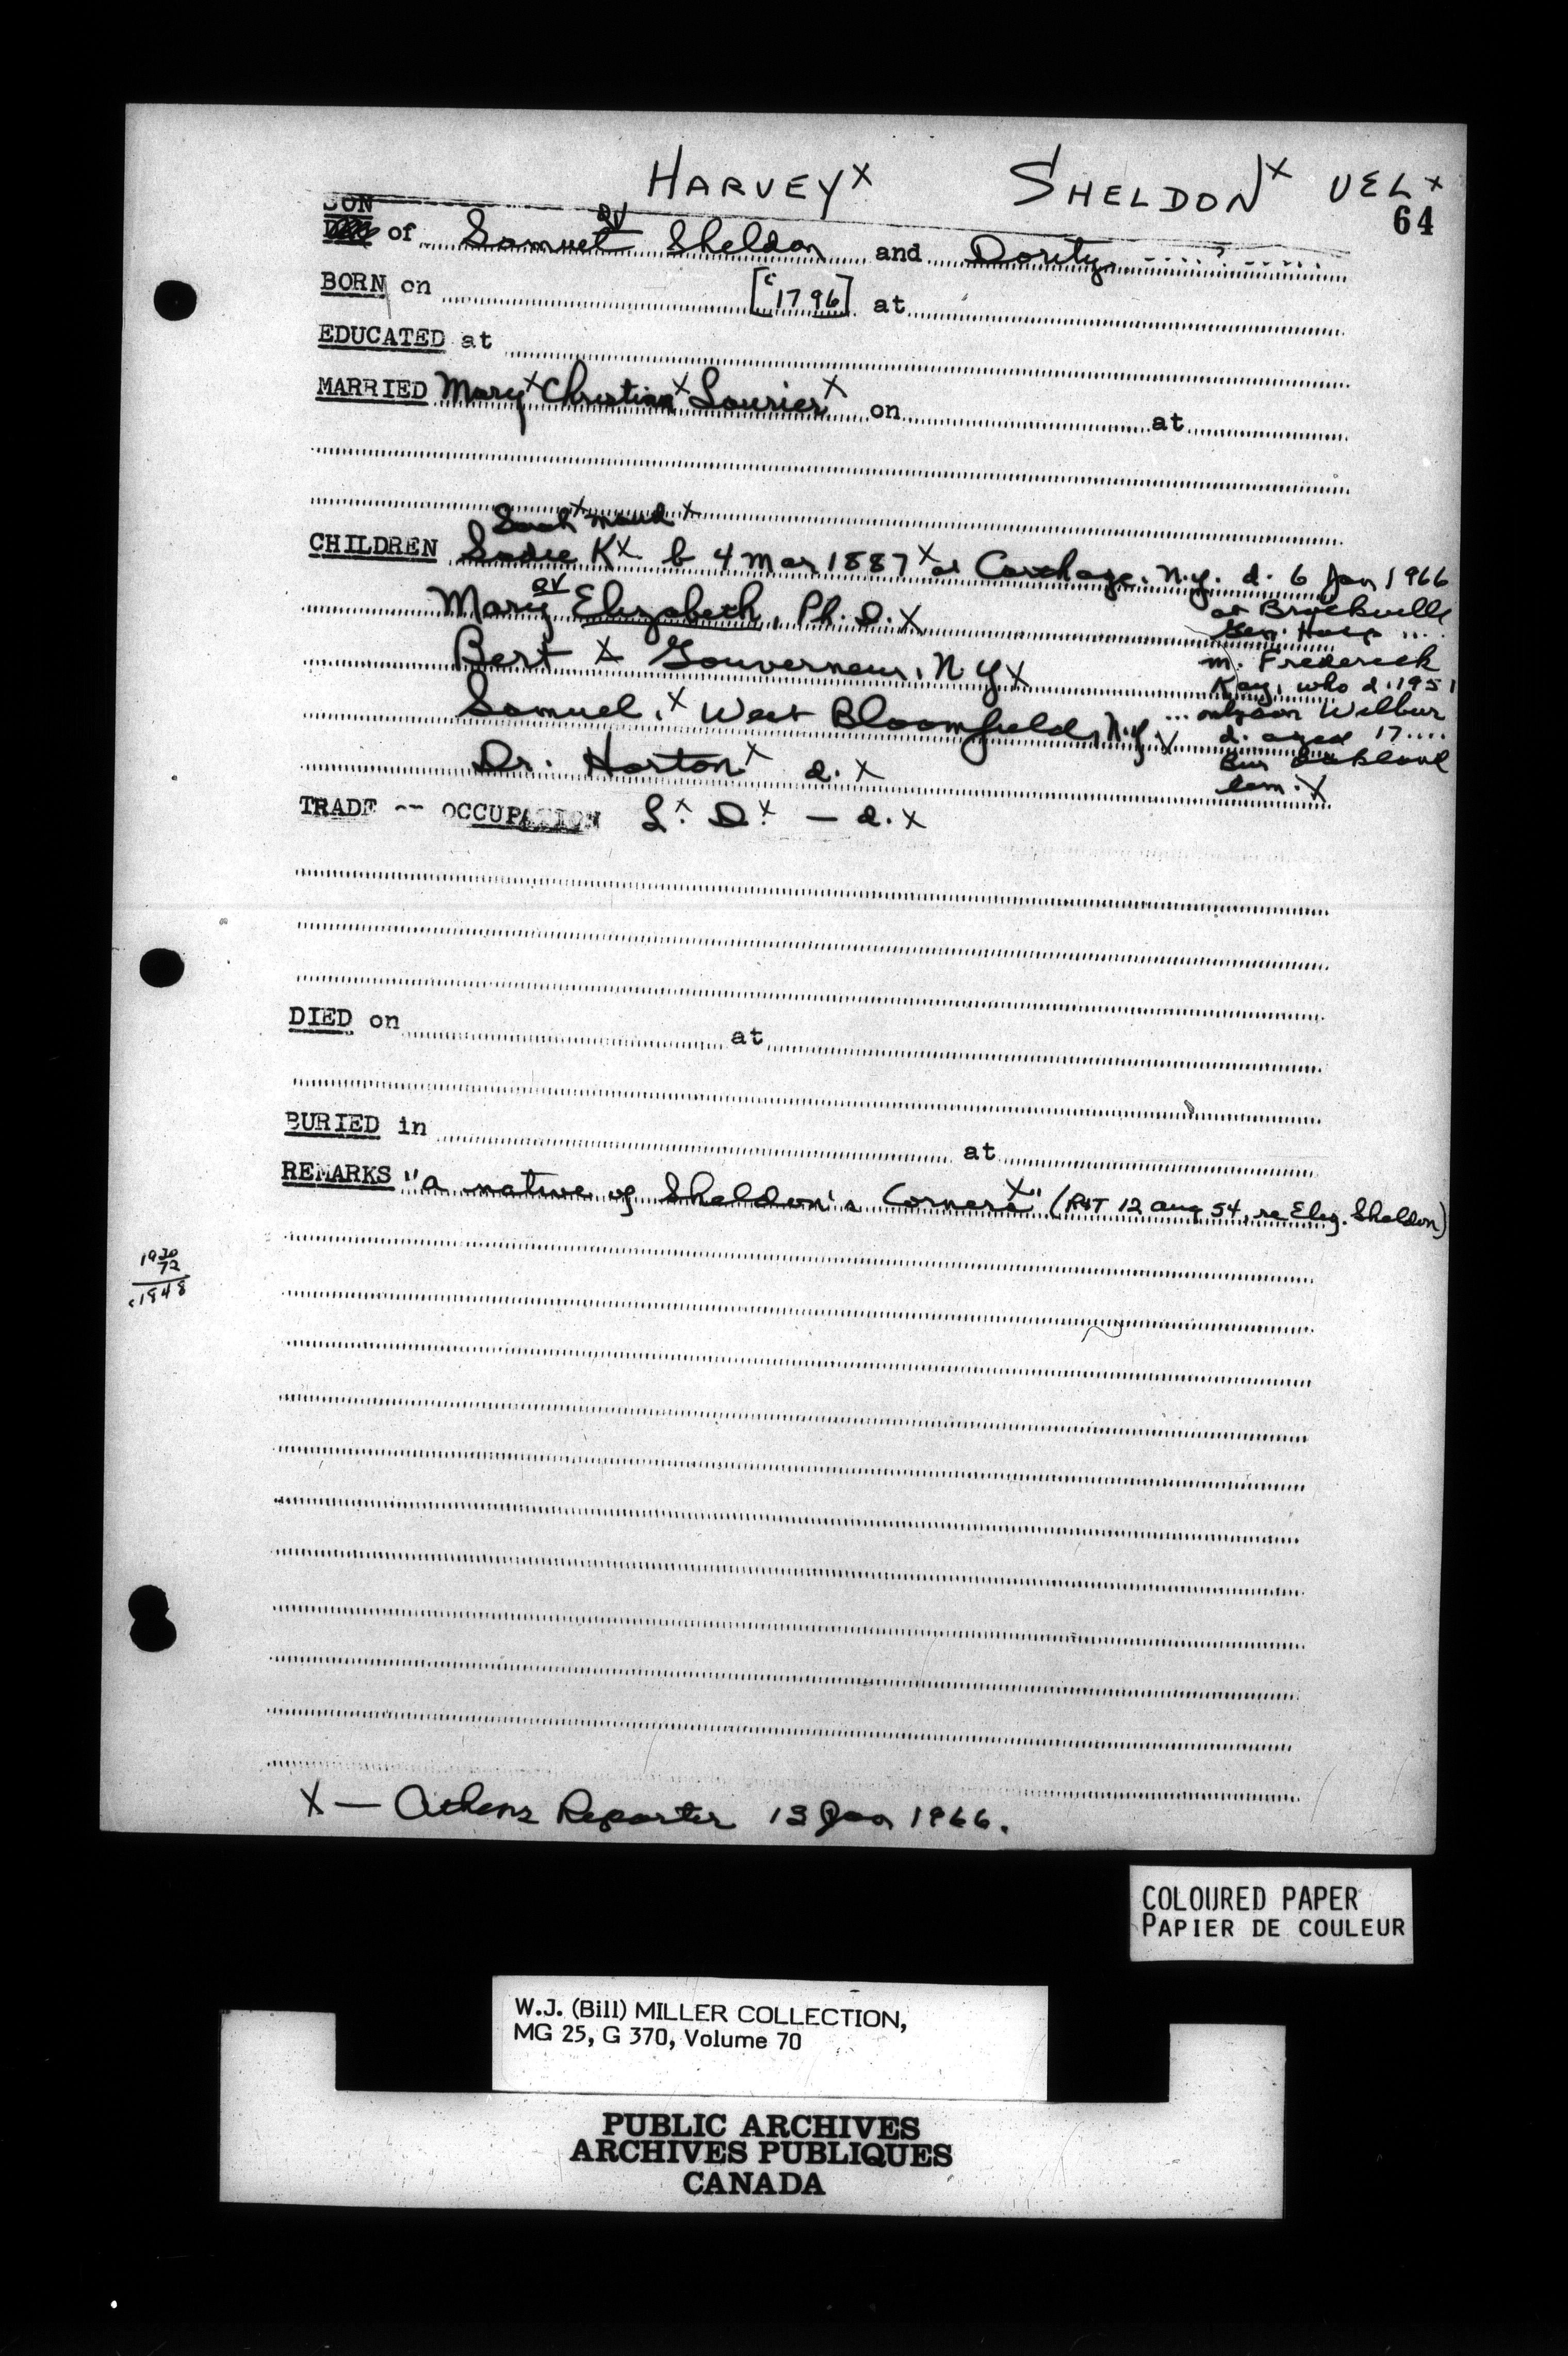 HARVEY x SHELDON x UEL x
64
SON
of Samuel Sheldon and Dority ....?.....
BORN on [c 1796] at
EDUCATED at
MARRIED Mary x Christina x Lourier x on at
Sarah x Maud x
CHILDREN Sadie K x b 4 Mar 1887 x at Carthage, N.Y. d. 6 Jan 1966
at Brockville
Gen. Hosp ....
Mary Elizabeth, Ph.D. x
m. Frederick
Kay, who d. 1951
Bert x Gouverneur, N Y x
... only son Wilbur
d. aged 17....
Samuel, x West Bloomfield, N.Y. x
Bur
Cem. x
Dr. Horton x d. x
TRADE -- OCCUPATION L. x D. x — d. x
DIED on at
BURIED in at
REMARKS "a native of Sheldon's Corners x" (R&T 12 Aug 54, re Eliz. Sheldon)
1920
72
c 1848
X — Athens Reporter 13 Jan 1966.
COLOURED PAPER
PAPIER DE COULEUR
W.J. (Bill) MILLER COLLECTION,
MG 25, G 370, Volume 70
PUBLIC ARCHIVES
ARCHIVES PUBLIQUES
CANADA